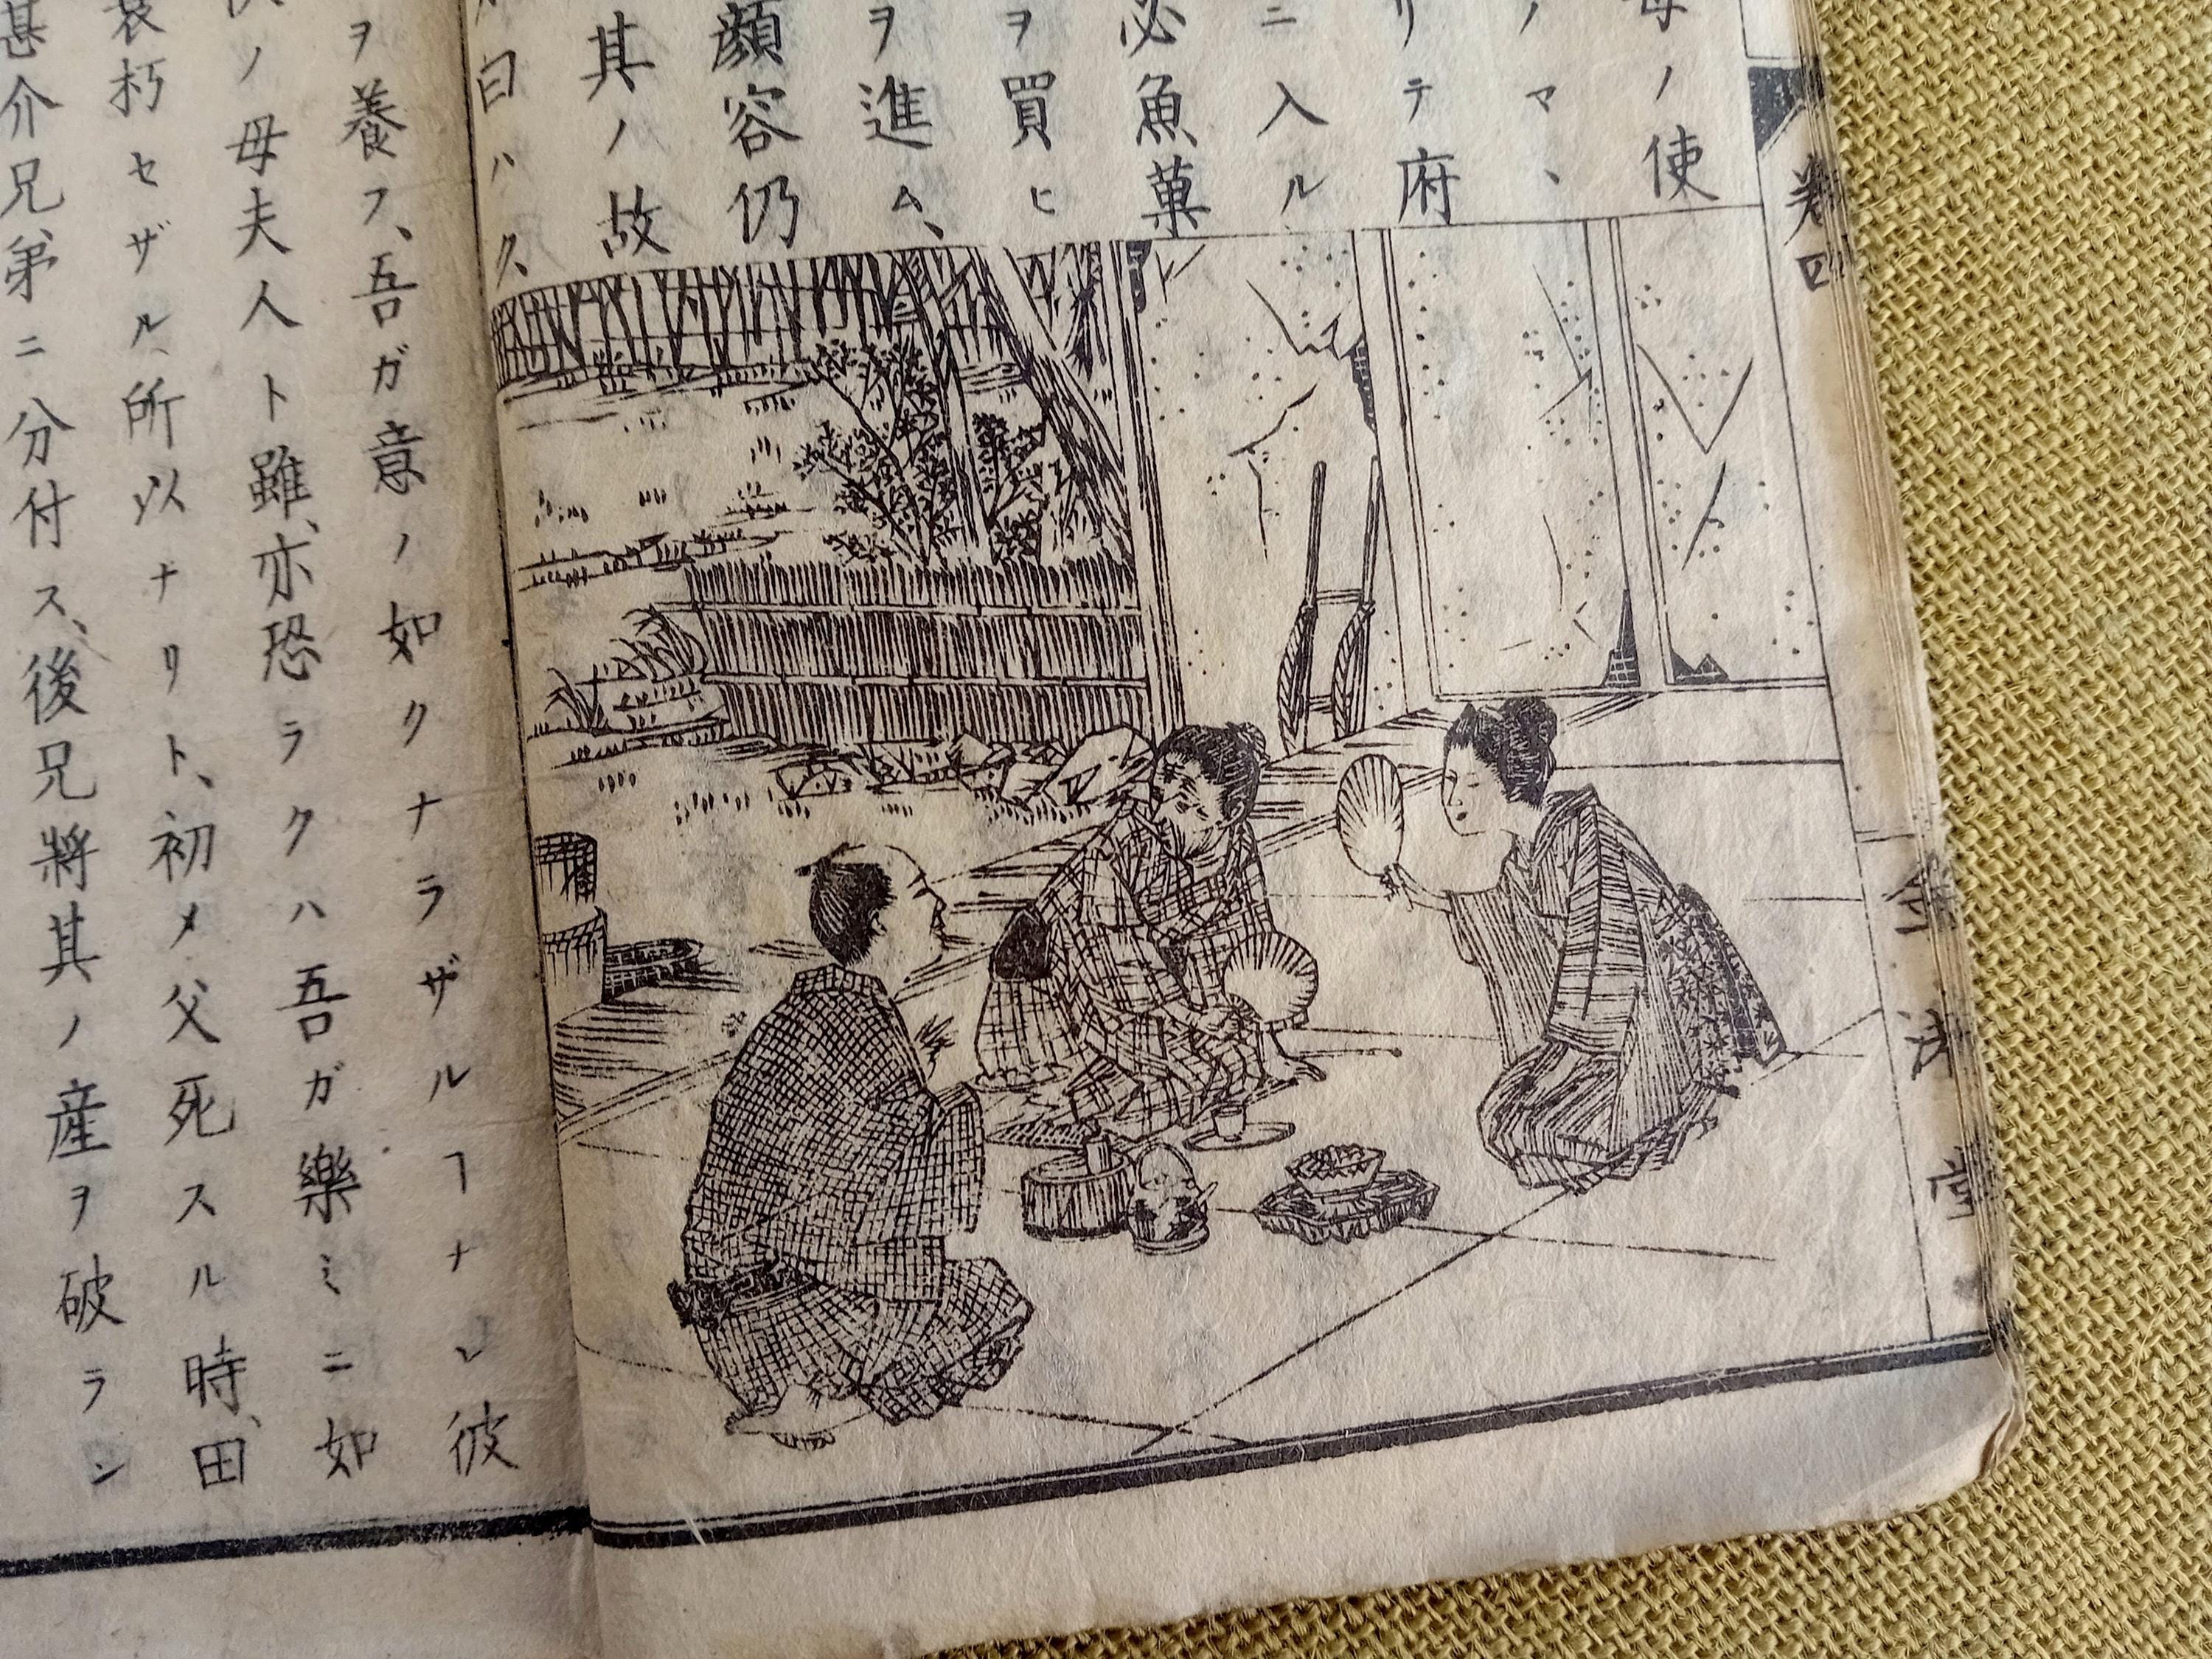 ノ使
ノマヽ
リテ府
ニ入ル
必魚菓
ヲ買ヒ
ヲ進ム、
顔容仍
其ノ故
曰ハク、
ヲ養フ、吾ガ意ノ如クナラザルヿナシ彼
ノ母夫人ト雖、亦恐ラクハ吾ガ樂ミニ如
衰朽セザル所以ナリト、初メ父死スル時、田
甚介兄弟ニ分付ス、後兄將其ノ産ヲ破ラン
卷四
金港堂